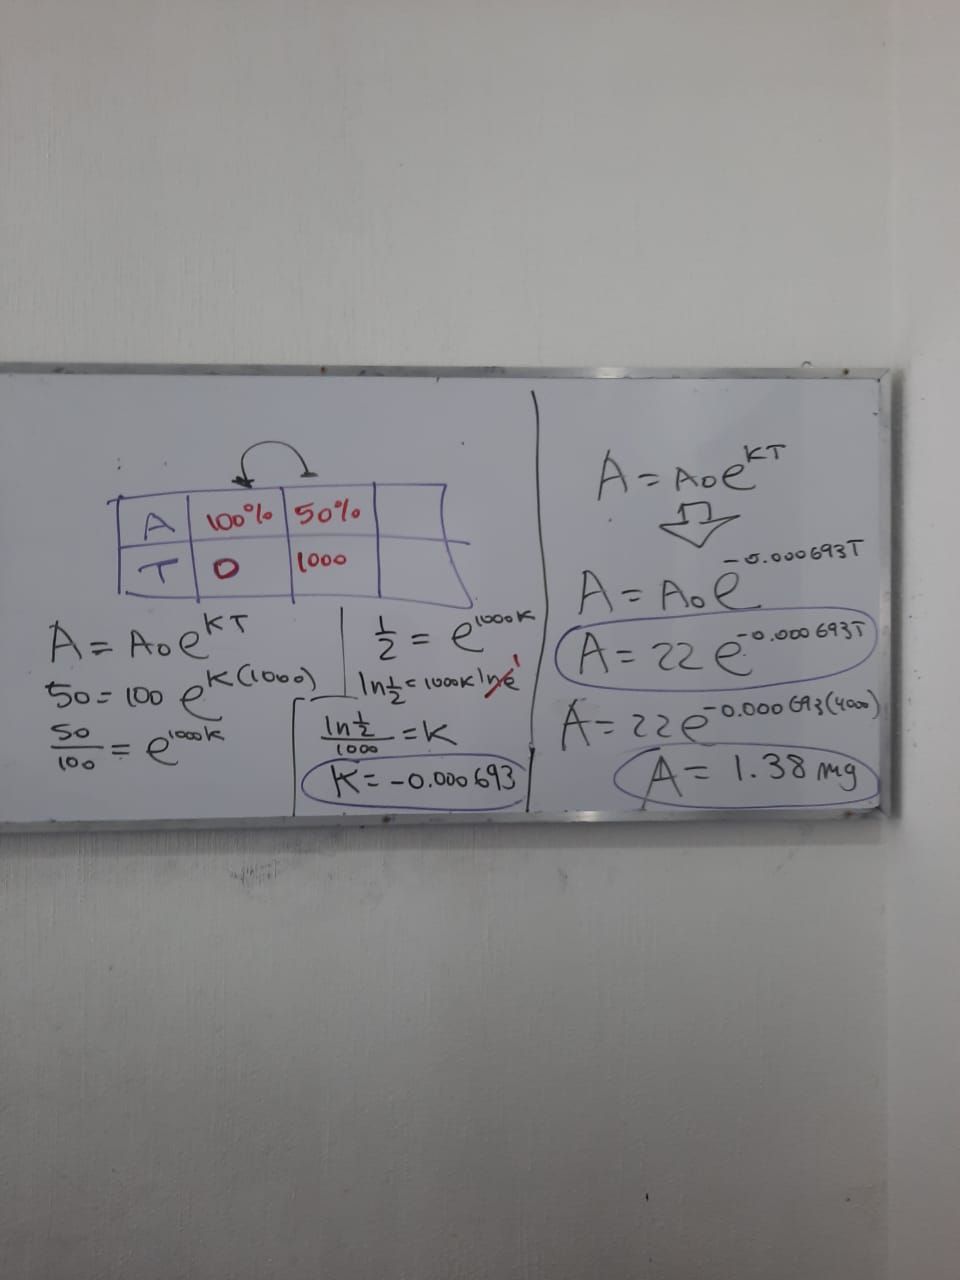 A 100% 50%
T 0 1000
A = A₀e^KT
50 = 100 e^K(1000)
50/100 = e^1000K
1/2 = e^1000K
ln 1/2 = 1000K ln e 1
ln 1/2 / 1000 = K
K = -0.000693
A = A₀e^KT
A = A₀e^-0.000693T
A = 22 e^-0.000693T
A = 22e^-0.000693(4000)
A = 1.38 mg